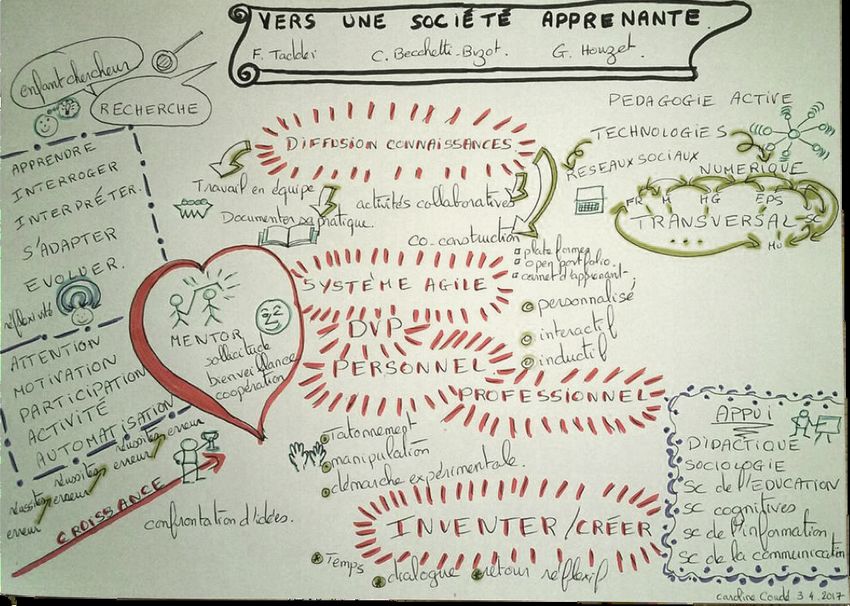 VERS UNE SOCIÉTÉ APPRENANTE.
F. Taddei C. Becchetti-Bizot. G. Houzet.
enfant chercheur
RECHERCHE
APPRENDRE
INTERROGER
INTERPRÉTER.
S'ADAPTER
EVOLUER.
réflexivité
ATTENTION
MOTIVATION
PARTICIPATION
ACTIVITÉ
AUTOMATISATION
erreur
réussites
erreur
réussites
erreur
réussites
erreur
CROISSANCE
confrontation d'idées.
MENTOR
sollicitude
bienveillance
coopération
DIFFUSION CONNAISSANCES
Travail en équipe
Documenter sa pratique.
activités collaboratives
co-construction
plateformes
open portfolio.
carnet d'apprenant
SYSTÈME AGILE
personnalisé
interactif
inductif
DVP
PERSONNEL
PROFESSIONNEL
Tatonnement
manipulation
démarche expérimentale.
INVENTER/CRÉER
Temps
dialogue
retour réflexif
PEDAGOGIE ACTIVE
TECHNOLOGIES
RESEAUX SOCIAUX
NUMERIQUE
FR M HG EPS SC
TRANSVERSAL
Mu
APPUI
DIDACTIQUE
SOCIOLOGIE
SC de l'EDUCATION
SC cognitives
SC de l'information
SC de la communication
caroline Coudé 3.4.2017